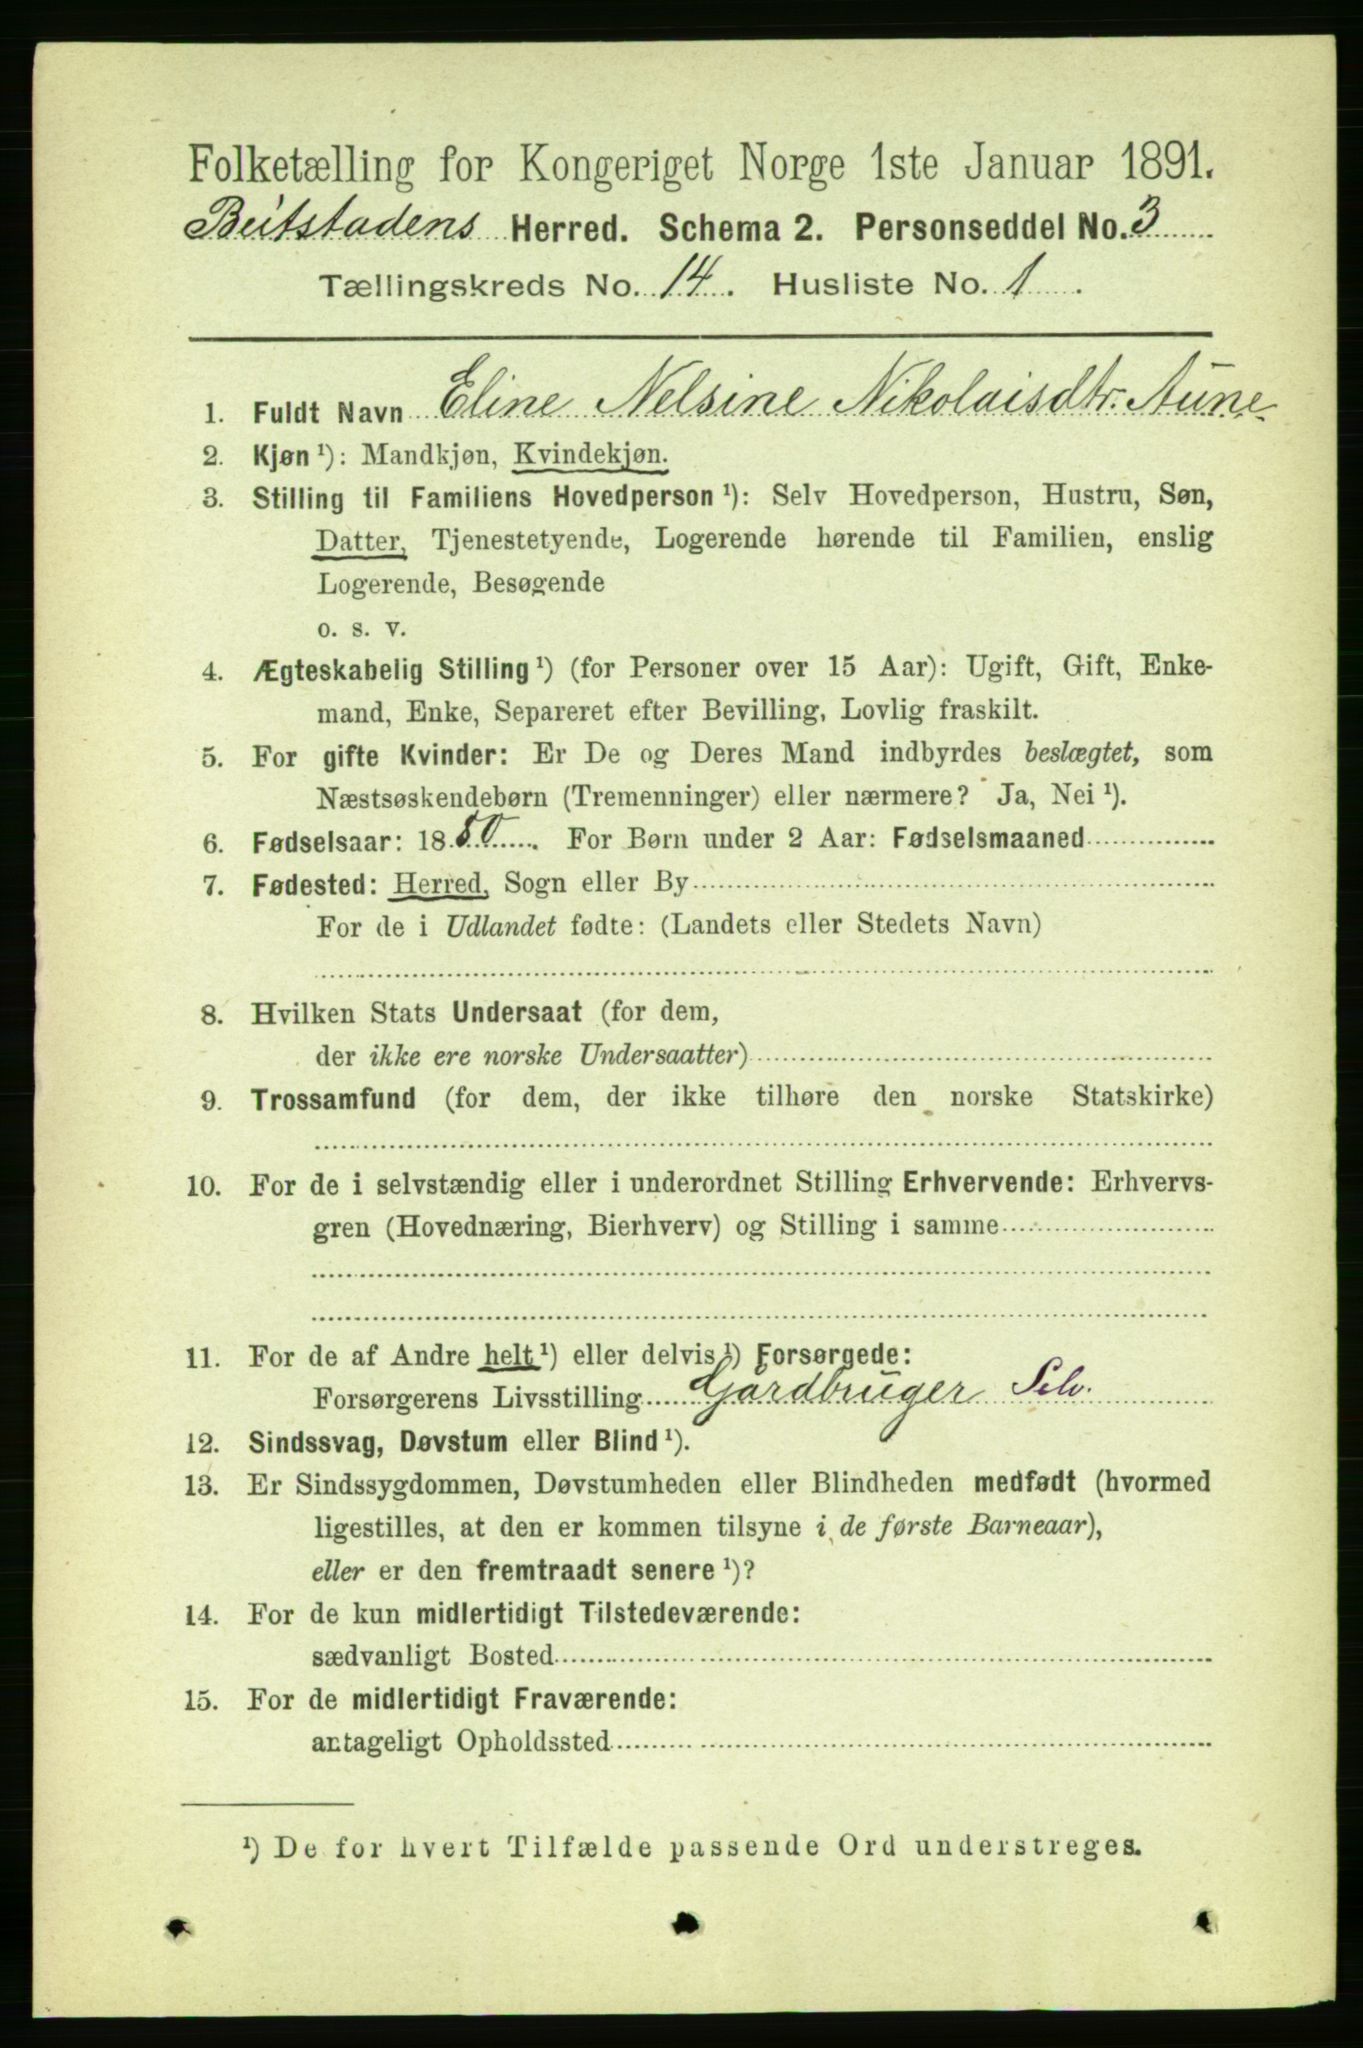 Folketælling for Kongeriget Norge 1ste Januar 1891.
Beitstadens Herred. Schema 2. Personseddel No. 3
Tællingskreds No. 14. Husliste No. 1.
1. Fuldt Navn Eline Nelsine Nikolaisdtr. Aune
2. Kjøn ¹): Mandkjøn, Kvindekjøn.
3. Stilling til Familiens Hovedperson ¹): Selv Hovedperson, Hustru, Søn,
Datter, Tjenestetyende, Logerende hørende til Familien, enslig
Logerende, Besøgende
o. s. v.
4. Ægteskabelig Stilling ¹) (for Personer over 15 Aar): Ugift, Gift, Enke-
mand, Enke, Separeret efter Bevilling, Lovlig fraskilt.
5. For gifte Kvinder: Er De og Deres Mand indbyrdes beslægtet, som
Næstsøskendebørn (Tremenninger) eller nærmere? Ja, Nei ¹).
6. Fødselsaar: 1880. For Børn under 2 Aar: Fødselsmaaned
7. Fødested: Herred, Sogn eller By
For de i Udlandet fødte: (Landets eller Stedets Navn)
8. Hvilken Stats Undersaat (for dem,
der ikke ere norske Undersaatter)
9. Trossamfund (for dem, der ikke tilhøre den norske Statskirke)
10. For de i selvstændig eller i underordnet Stilling Erhvervende: Erhvervs-
gren (Hovednæring, Bierhverv) og Stilling i samme
11. For de af Andre helt ¹) eller delvis ¹) Forsørgede:
Forsørgerens Livsstilling Gårdbruger Selv.
12. Sindssvag, Døvstum eller Blind ¹).
13. Er Sindssygdommen, Døvstumheden eller Blindheden medfødt (hvormed
ligestilles, at den er kommen tilsyne i de første Barneaar),
eller er den fremtraadt senere ¹)?
14. For de kun midlertidigt Tilstedeværende:
sædvanligt Bosted
15. For de midlertidigt Fraværende:
antageligt Opholdssted
¹) De for hvert Tilfælde passende Ord understreges.